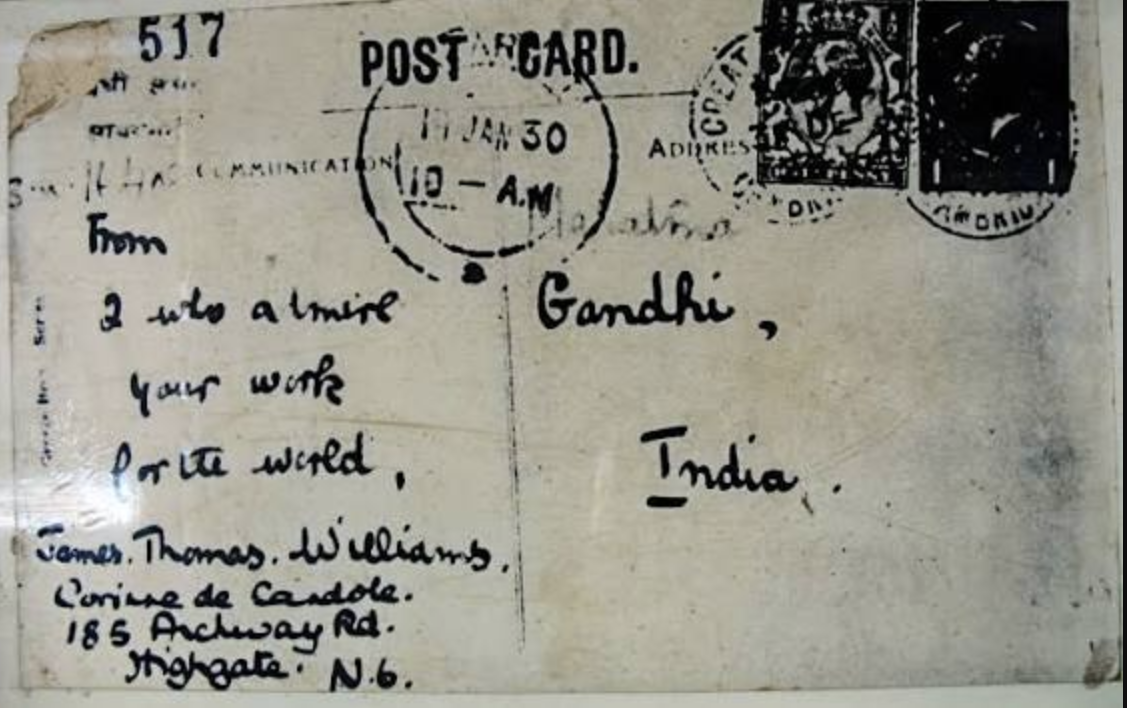 517
POST CARD.
JAN 30
10 - A.M
COMMUNICATION
ADDRESS
GREAT
From
I who admire
your work
for the world,
James. Thomas. Williams.
Corinne de Candole.
185 Archway Rd.
Highgate. N.6.
Mahatma
Gandhi,
India.